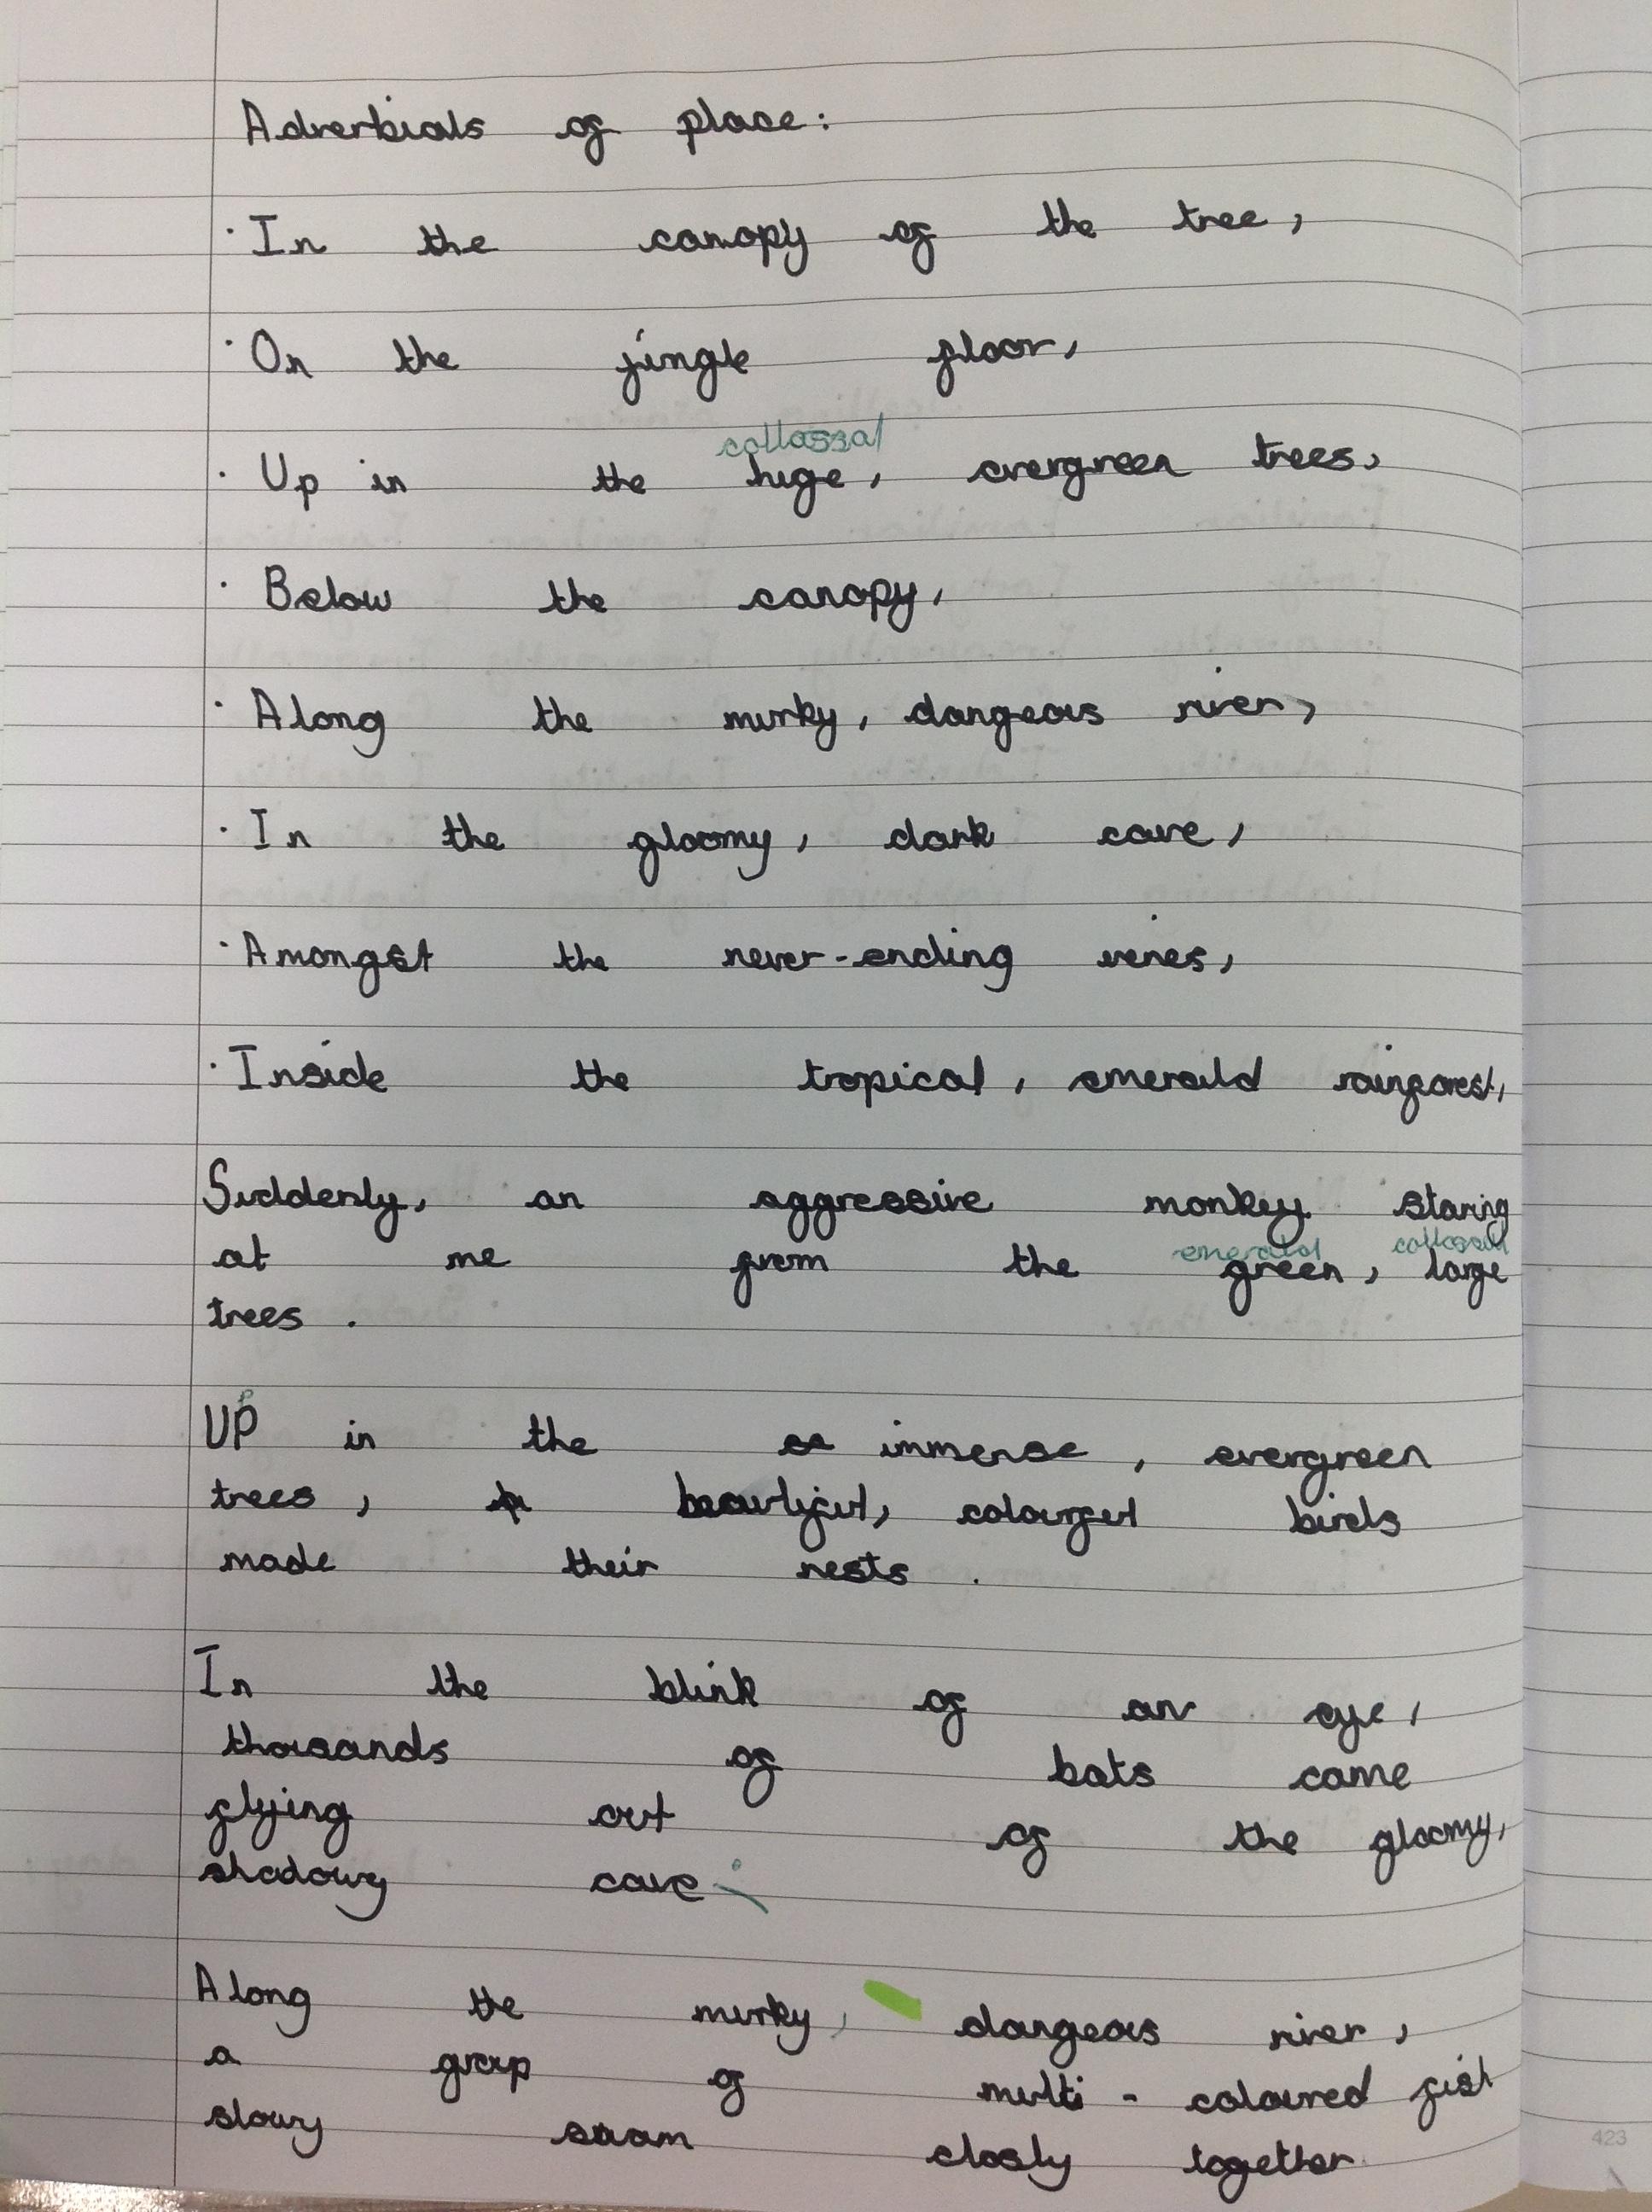 Adverbials of place:
· In the canopy of the tree,
· On the jungle floor,
collassal
· Up in the huge, evergreen trees,
· Below the canopy,
· Along the murky, dangeous river,
· In the gloomy, dark cave,
· Amongst the never-ending vines,
· Inside the tropical, emerald rainforest,
Suddenly, an aggressive monkey staring
emerald collassal
at me from the green, large
trees.
p
UP in the immense, evergreen
trees, beautiful, colourful birds
made their nests.
In the blink of an eye,
thousands of bats came
flying out of the gloomy,
shadowy cave.
Along the murky, dangeous river,
a group of multi-coloured fish
slowy swam closly together
423